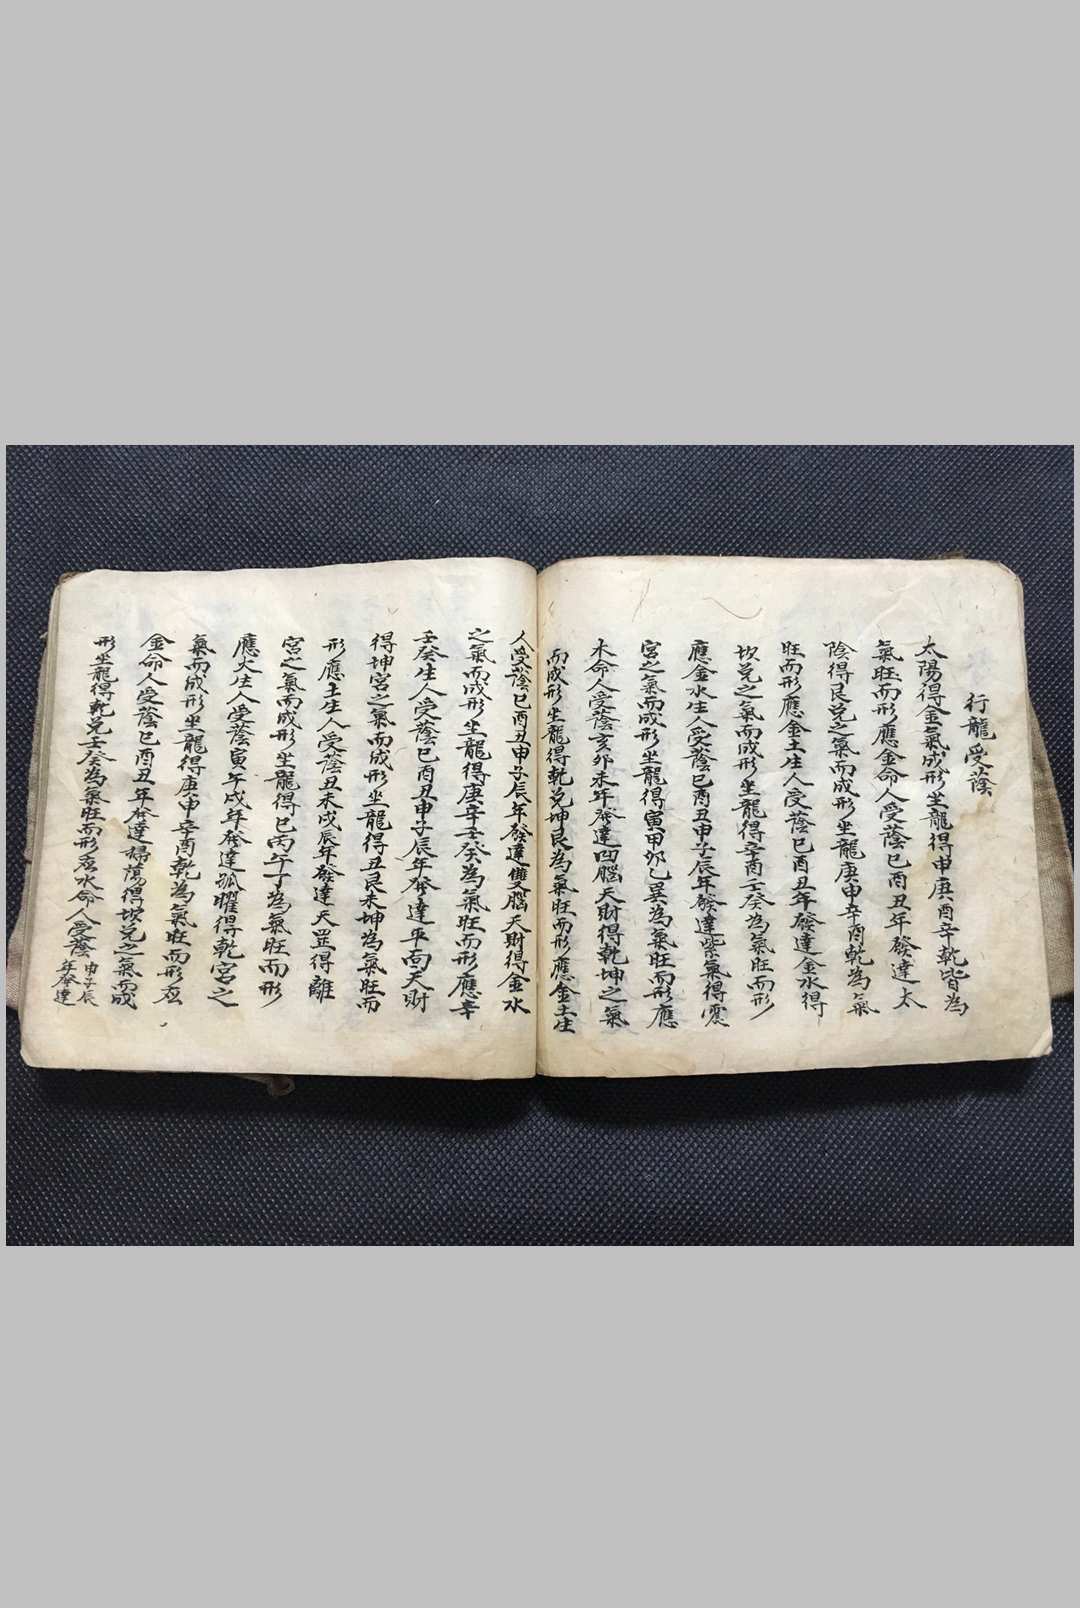 行龍受蔭
太陽得金氣成形坐龍得申庚酉辛乾皆為
氣旺而形應金命人受蔭巳酉丑年發達太
陰得艮兑之氣而成形坐龍庚申辛酉乾為氣
旺而形應金土生人受蔭巳酉丑年發達金水得
坎兑之氣而成形坐龍得辛酉壬癸為氣旺而形
應金水生人受蔭巳酉丑申子辰年發達紫氣得震
宮之氣而成形坐龍得寅甲卯乙巽為氣旺而形應
木命人受蔭亥卯未年發達四腦天財得乾坤之氣
而成形坐龍得乾兑坤艮為氣旺而形應金土生
人受蔭巳酉丑申子辰年發達雙腦天財得金水
之氣而成形坐龍得庚辛壬癸為氣旺而形應辛
壬癸生人受蔭巳酉丑申子辰年發達平面天財
得坤宮之氣而成形坐龍得丑艮未坤為氣旺而
形應土生人受蔭丑未戌辰年發達天罡得離
宮之氣而成形坐龍得巳丙午丁為氣旺而形
應火生人受蔭寅午戌年發達孤曜得乾宮之
氣而成形坐龍得庚申辛酉乾為氣旺而形应
金命人受蔭巳酉丑年發達掃蕩得坎兑之氣而成
形坐龍得乾兑壬癸為氣旺而形应水命人受蔭
申子辰
年發達